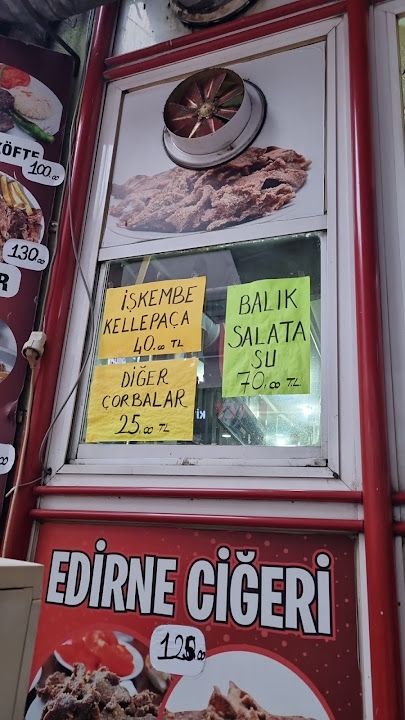 KÖFTE
100.00
130.00
R
İŞKEMBE
KELLEPAÇA
40.00 TL
DİĞER
ÇORBALAR
25.00 TL
BALIK
SALATA
SU
70.00 TL
EDİRNE CİĞERİ
125.00